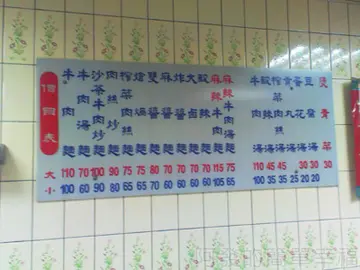 價目表
大
小
牛肉麵 110 100
牛肉湯麵 70 60
沙茶牛肉炒麵 100 90
肉絲炒麵 90 80
榨菜肉絲麵 75 65
麵
雙醬麵
麻醬麵
炸醬麵
大滷麵
酸辣麵
麻辣牛肉麵 115 105
麻辣湯麵 75 65
牛肉湯 110 100
酸辣湯 45 35
榨菜肉絲湯 45 35
貢丸湯 25
蛋花湯 30 20
豆腐湯 30 20
燙青菜 30